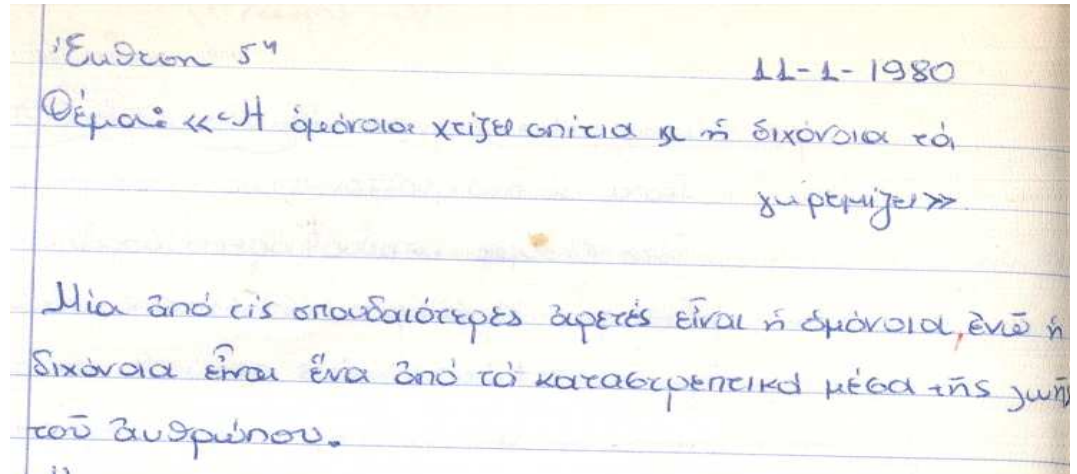 Ἔκθεση 5η
11-1-1980
Θέμα: «Ἡ ὁμόνοια χτίζει σπίτια κι ἡ διχόνοια τά
γκρεμίζει»
Μία ἀπό τίς σπουδαιότερες ἀρετές εἶναι ἡ ὁμόνοια, ἐνῶ ἡ
διχόνοια εἶναι ἕνα ἀπό τά καταστρεπτικά μέσα τῆς ζωῆς
τοῦ ἀνθρώπου.